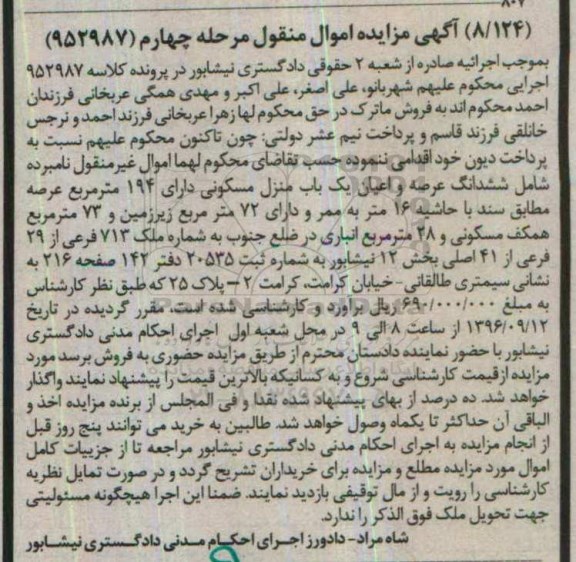 ۸۰۷
(۸/۱۲۴) آگهی مزایده اموال منقول مرحله چهارم (۹۵۲۹۸۷)
بموجب اجرائیه صادره از شعبه ۲ حقوقی دادگستری نیشابور در پرونده کلاسه ۹۵۲۹۸۷
اجرایی محکوم علیهم شهربانو، علی اصغر، علی اکبر و مهدی همگی عربخانی فرزندان
احمد محکوم اند به فروش ماترک در حق محکوم لها زهرا عربخانی فرزند احمد و نرجس
خانلقی فرزند قاسم و پرداخت نیم عشر دولتی: چون تاکنون محکوم علیهم نسبت به
پرداخت دیون خود اقدامی ننموده حسب تقاضای محکوم لهما اموال غیرمنقول نامبرده
شامل ششدانگ عرصه و اعیان یک باب منزل مسکونی دارای ۱۹۴ مترمربع عرصه
مطابق سند با حاشیه ۱۶ متر به ممر و دارای ۷۲ متر مربع زیرزمین و ۷۳ مترمربع
همکف مسکونی و ۲۸ مترمربع انباری در ضلع جنوب به شماره ملک ۷۱۳ فرعی از ۲۹
فرعی از ۴۱ اصلی بخش ۱۲ نیشابور به شماره ثبت ۲۰۵۳۵ دفتر ۱۴۲ صفحه ۲۱۶ به
نشانی سیمتری طالقانی- خیابان کرامت، کرامت ۲ – پلاک ۲۵ که طبق نظر کارشناس
به مبلغ ۶۹۰/۰۰۰/۰۰۰ ریال برآورد و کارشناسی شده است. مقرر گردیده در تاریخ
۱۳۹۶/۰۹/۱۲ از ساعت ۸ الی ۹ در محل شعبه اول اجرای احکام مدنی دادگستری
نیشابور با حضور نماینده دادستان محترم از طریق مزایده حضوری به فروش برسد مورد
مزایده از قیمت کارشناسی شروع و به کسانیکه بالاترین قیمت را پیشنهاد نمایند واگذار
خواهد شد. ده درصد از بهای پیشنهاد شده نقدا و فی المجلس از برنده مزایده اخذ و
الباقی آن حداکثر تا یکماه وصول خواهد شد. طالبین به خرید می توانند پنج روز قبل
از انجام مزایده به اجرای احکام مدنی دادگستری نیشابور مراجعه تا از جزییات کامل
اموال مورد مزایده مطلع و مزایده برای خریداران تشریح گردد و در صورت تمایل نظریه
کارشناسی را رویت و از مال توقیفی بازدید نمایند. ضمنا این اجرا هیچگونه مسئولیتی
جهت تحویل ملک فوق الذکر را ندارد.
شاه مراد- دادورز اجرای احکام مدنی دادگستری نیشابور